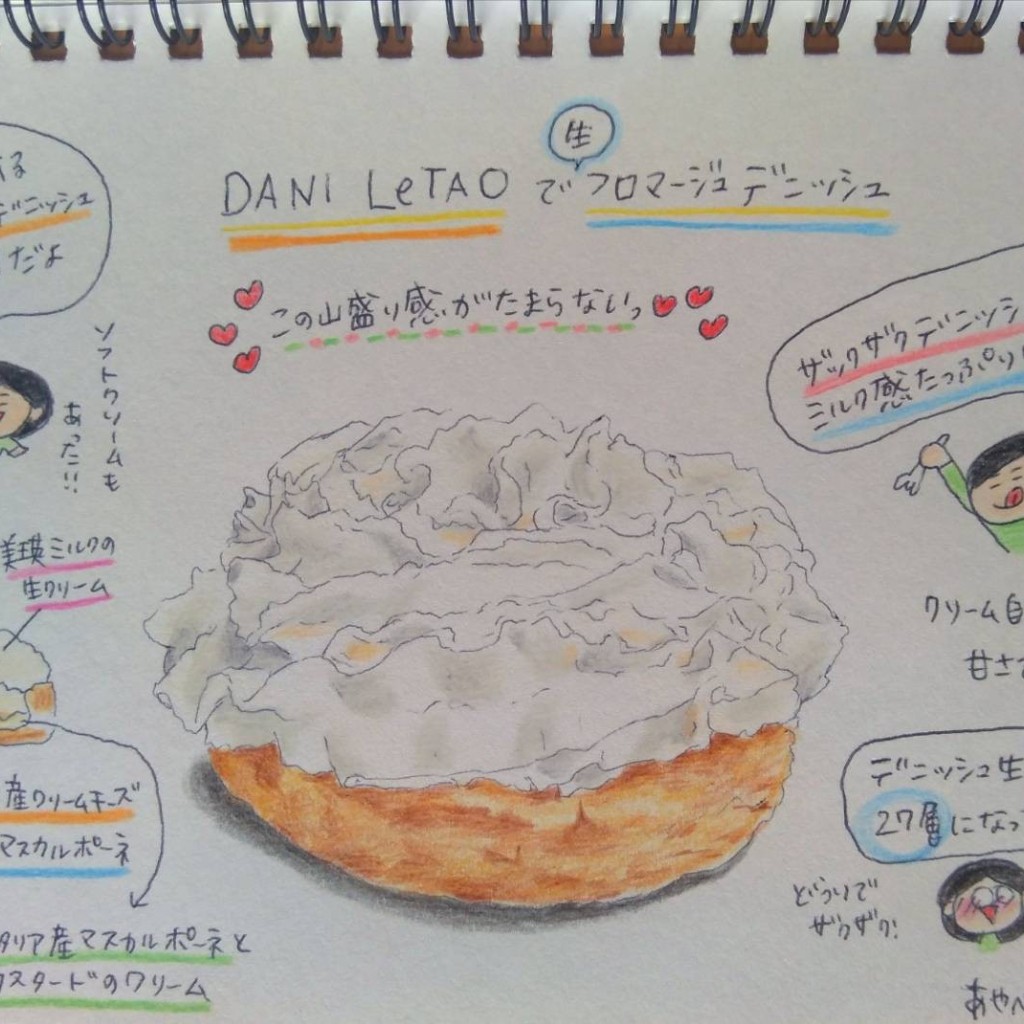 生
DANI LeTAO でフロマージュデニッシュ
この山盛り感がたまらないっ
デニッシュ
だよ
ソフトクリームも
あった!!
美瑛ミルクの
生クリーム
産クリームチーズ
マスカルポーネ
タリア産マスカルポーネと
スタードのクリーム
ザックザクデニッシ
ミルク感たっぷり
クリーム自
甘さ
デニッシュ生
27層になっ
どうりで
ザクザク!
あやへ